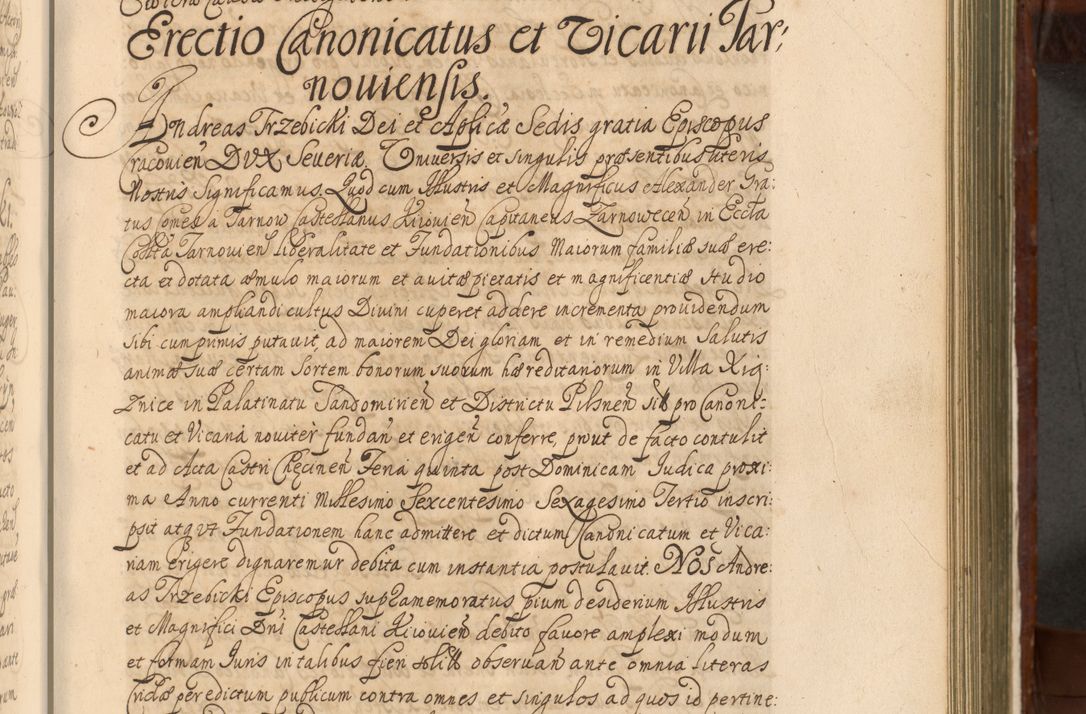 Erectio Canonicatus et Vicarii Tar:
noviensis.
Andreas Trzebicki Dei et Aplicæ Sedis gratia Episcopus
Cracovień DVX Severiæ. Universis et singulis præsentibus literis
Nostris Significamus. Quod cum Illustris et Magnificus Alexander Gra:
tus Comes a Tarnow Castellanus Kiiovień Capitaneus Zarnoweceń in Eccla
Collta Tarnovień liberalitate et Fundationibus Maiorum familiæ suæ ere:
cta et dotata æmulo maiorum et avitæ pietatis et magnificentiæ studio
maiora ampliandi cultus Divini cuperet addere incrementa providendum
sibi cumprimis putavit, ad maiorem Dei gloriam et in remedium Salutis
animæ suæ certam sortem bonorum suorum hæreditariorum in Villa Xią:
Znice in Palatinatu Sandomirień et Districtu Pilsneń pro Canoni:
catu et Vicaria noviter fundań et erigeń conferre, prout de facto contulit
et ad Acta Castri Chęcineń Feria quinta post Dominicam Judica proxi:
ma Anno currenti Millesimo Sexcentesimo Sexagesimo Tertio inscri:
psit atq vt Fundationem hanc admittere et dictum Canonicatum et Vica:
riam Erigere dignaremur debita cum instantia postulavit. NOS Andre:
as Trzebicki Episcopus supramemoratus pium desiderium Illustris
et Magnifici Dńi Castellani Kiiovień debito favore amplexi modum
et formam Juris in talibus fieri solitt observań ante omnia literas
Cridæ per edictum publicum contra omnes et singulos ad quos id pertine: